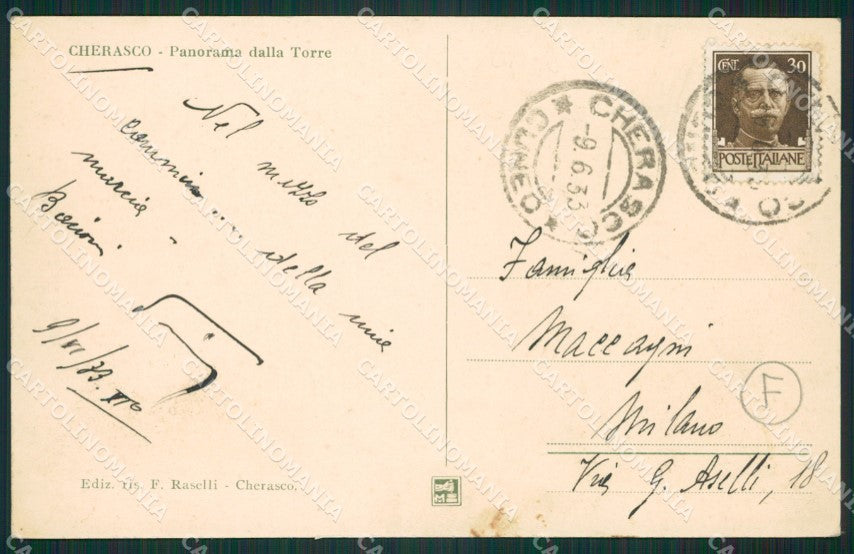 CHERASCO - Panorama dalla Torre
Nel mezzo del
cammin ... della mia
marcia -
Bacioni
9/VI/33. XI°
Ediz. ris. F. Raselli - Cherasco.
CENT. 30
POSTE ITALIANE
CHERASCO * CUNEO *
-9.6.33
Famiglia
Maccagni
Milano
Via G. Aselli, 18
F
CARTOLINOMANIA